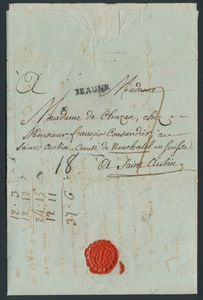 BEAUNE
A Madame
Madame de Chazan, chez
Monsieur françois Cousandier au
Saint Aubin, Comté de Neuchatel en Suisse
A Saint Aubin
18
12-3
12-12
24-15
12-11
37-6